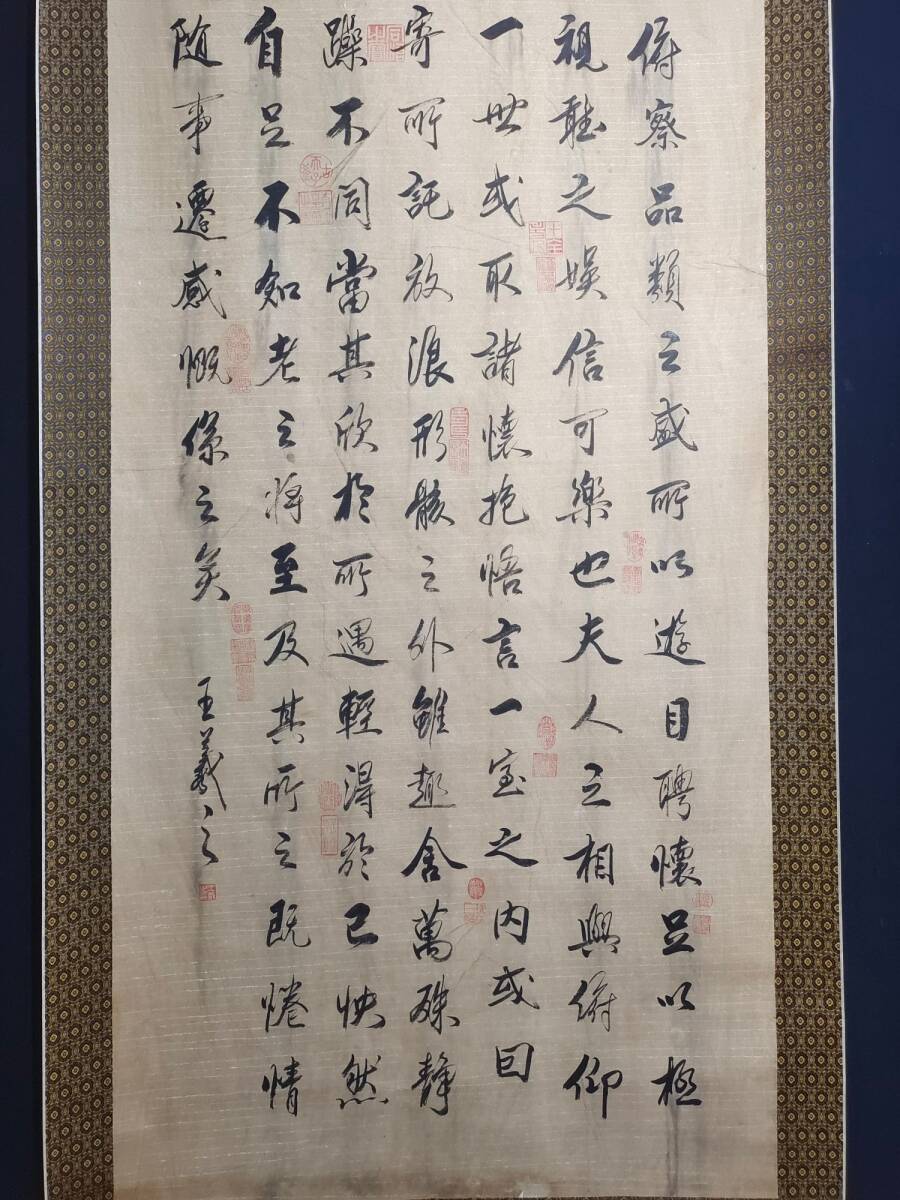 俯察品類之盛所以遊目聘懷足以極
視聽之娛信可樂也夫人之相與俯仰
一世或取諸懷抱悟言一室之內或因
寄所託放浪形骸之外雖趣舍萬殊靜
躁不同當其欣於所遇輕得於己快然
自足不知老之將至及其所之既惓情
隨事遷感慨係之矣 王羲之